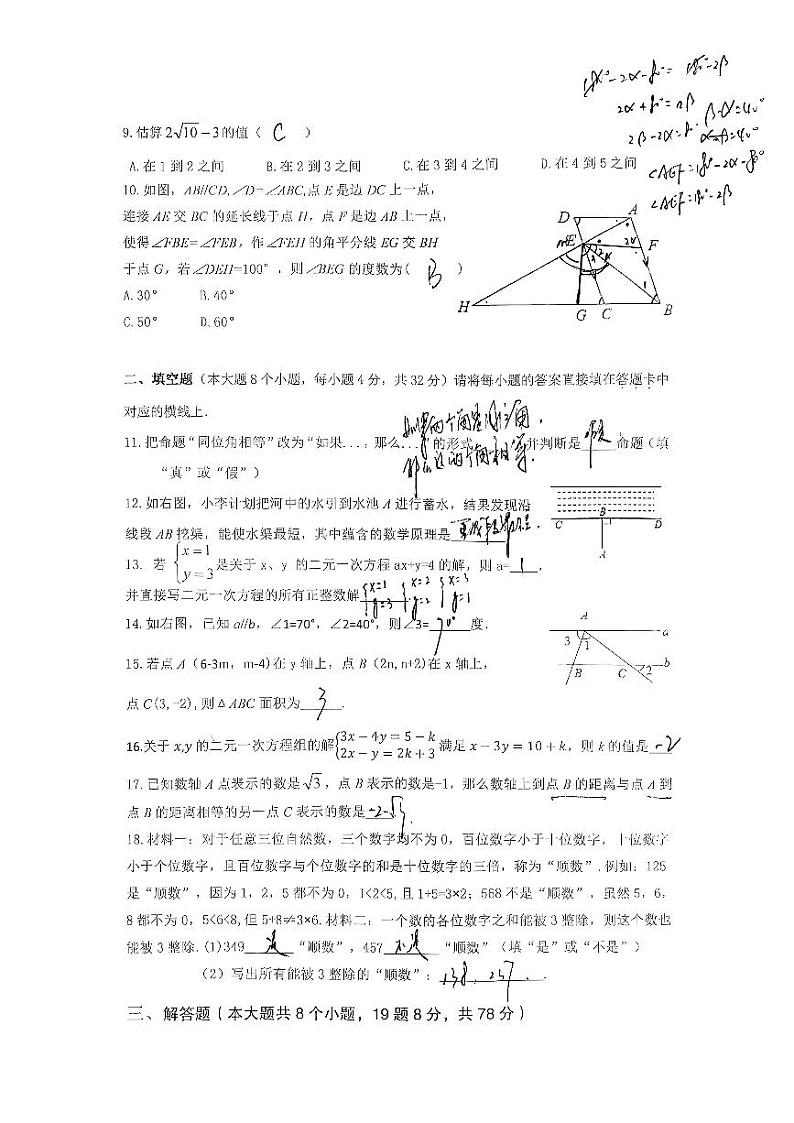 180°-2α-80°=180°-2β
2α+80°=2β
β-α=40°
9.估算2√10-3的值( C )
A.在1到2之间 B.在2到3之间 C.在3到4之间 D.在4到5之间
∠AEF=180°-2α-80°
∠AEF=180°-2β
10.如图,AB//CD,∠D=∠ABC,点E是边DC上一点,
连接AE交BC的延长线于点H,点F是边AB上一点,
使得∠FBE=∠FEB,作∠FEH的角平分线EG交BH
于点G,若∠DEH=100°,则∠BEG的度数为( B )
A.30° B.40°
C.50° D.60°
D A
E F
H G C B
二、填空题(本大题8个小题,每小题4分,共32分)请将每小题的答案直接填在答题卡中
对应的横线上.
如果两个角是同位角,
11.把命题“同位角相等”改为“如果...,那么...”的形式 并判断是 命题(填
那么这两个角相等.
“真”或“假”)
12.如右图,小李计划把河中的水引到水池A进行蓄水,结果发现沿
线段AB挖渠,能使水渠最短,其中蕴含的数学原理是 .
C B D
A
13. 若 {x=1 y=3 是关于x、y 的二元一次方程ax+y=4的解,则a= 1 ,
并直接写二元一次方程的所有正整数解 {x=1 y=3 {x=2 y=2 {x=3 y=1
14.如右图,已知a//b,∠1=70°,∠2=40°,则∠3= 70° 度.
A a
3 1
B C 2 b
15.若点A(6-3m,m-4)在y轴上,点B(2n,n+2)在x轴上,
点C(3,-2),则△ABC面积为 3 .
16.关于x,y的二元一次方程组的解{3x-4y=5-k 2x-y=2k+3 满足x-3y=10+k,则k的值是 -2
17.已知数轴A点表示的数是√3,点B表示的数是-1,那么数轴上到点B的距离与点A到
点B的距离相等的另一点C表示的数是 -2-√3 .
18.材料一:对于任意三位自然数,三个数字均不为0,百位数字小于十位数字,十位数字
小于个位数字,且百位数字与个位数字的和是十位数字的三倍,称为“顺数”.例如:125
是“顺数”,因为1,2,5都不为0,1<2<5,且1+5=3×2;568不是“顺数”,虽然5,6,
8都不为0,5<6<8,但5+8≠3×6.材料二:一个数的各位数字之和能被3整除,则这个数也
能被3整除.(1)349 是 “顺数”,457 不是 “顺数”(填“是”或“不是”)
(2)写出所有能被3整除的“顺数”: 138,237 .
三、解答题(本大题共8个小题,19题8分,共78分)